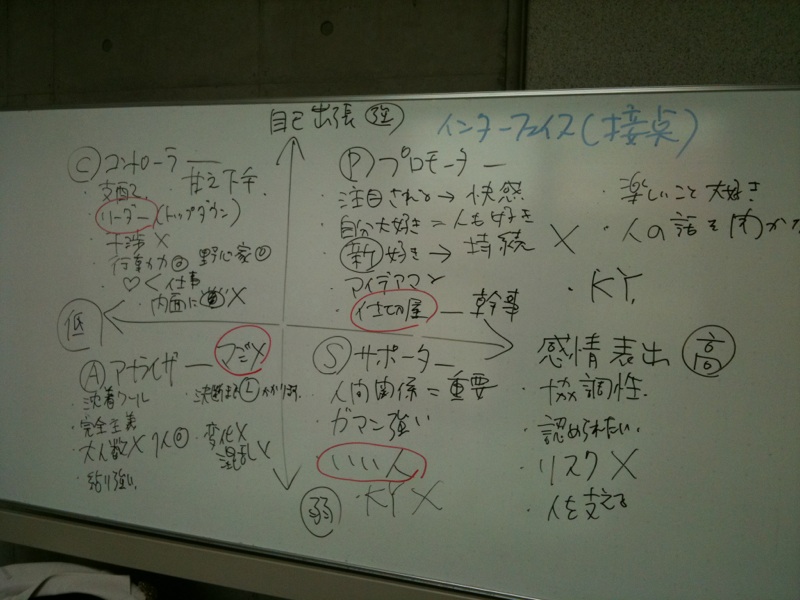 自己出張 強
インターフェイス(接点)
C コントローラー
・支配的 甘え下手
リーダー(トップダウン)
・干渉 X
・行動力◎ 野心家◎
・♡<仕事
・内面に X
P プロモーター
・注目される→快感
・自分大好き=人も好き
・新好き→持続 X
・アイデアマン
・仕切り屋 ― 幹事
・楽しいこと大好き
・人の話を
・KY
低
感情表出 高
A アナライザー マジメ
・沈着クール
・完全主義
・大人数X 1人◎
・粘り強い
・決断まで
・変化X
混乱X
S サポーター
・人間関係=重要
・ガマン強い
・いい人
・KY X
・協調性
・認められたい
・リスク X
・人を支える
弱